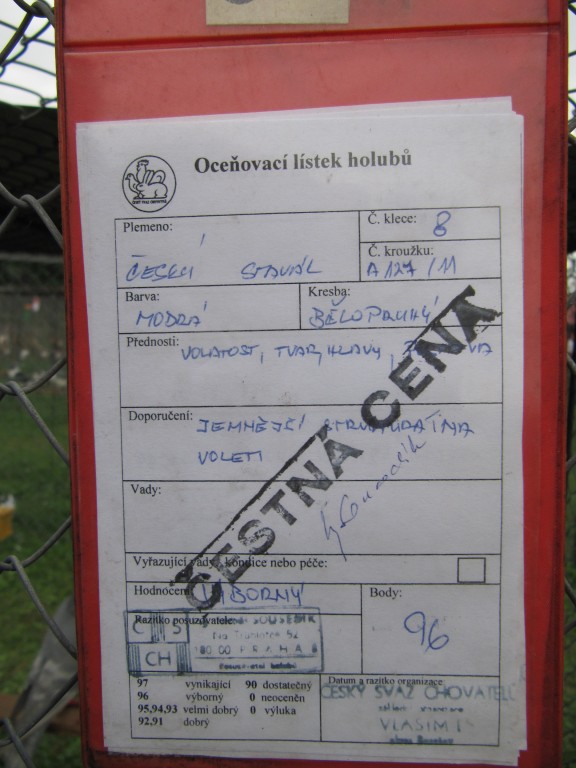 Oceňovací lístek holubů
Plemeno:
ČESKÝ STAVÁK
Č. klece: 8
Č. kroužku:
A 127/11
Barva:
MODRÁ
Kresba:
BĚLOPRUHÝ
Přednosti: VOLATOST, TVAR, HLAVY,
Doporučení: JEMNĚJŠÍ STRUKTURA NA
VOLETI
ČESTNÁ CENA
Vady:
Vyřazující vady, kondice nebo péče:
Hodnocení: VÝBORNÝ
Body:
96
Razítko posuzovatele:
ČS
CH
SOUSEDÍK
52
100 00 PRAHA
Posuzovatel holubů
97 vynikající 90 dostatečný
96 výborný 0 neoceněn
95,94,93 velmi dobrý 0 výluka
92,91 dobrý
Datum a razítko organizace
ČESKÝ SVAZ CHOVATELŮ
VLAŠIM